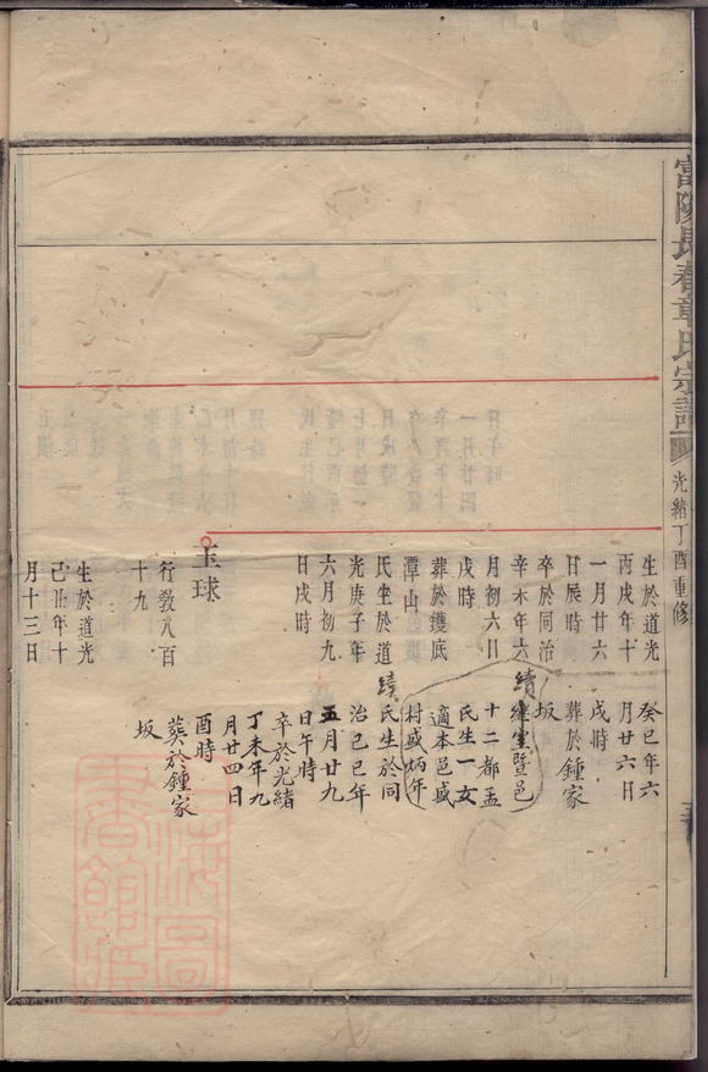 富陽長春章氏宗譜
光緒丁酉重修
生於道光
丙戌年十
一月廿六
日辰時
卒於同治
辛未年六
月初六日
戌時
葬於鑊底
潭山
氏生於道
光庚子年
六月初九
日戌時
癸巳年六
月廿六日
戌時
葬於鍾家
坂
續繼室暨邑
十二都孟
氏生一女
適本邑盛
村盛炳年
續氏生於同
治己巳年
五月廿九
日午時
卒於光緒
丁未年九
月廿四日
酉時
葬於鍾家
坂
玉球
行敎八百
十九
生於道光
己丑年十
月十三日
上海圖書館藏